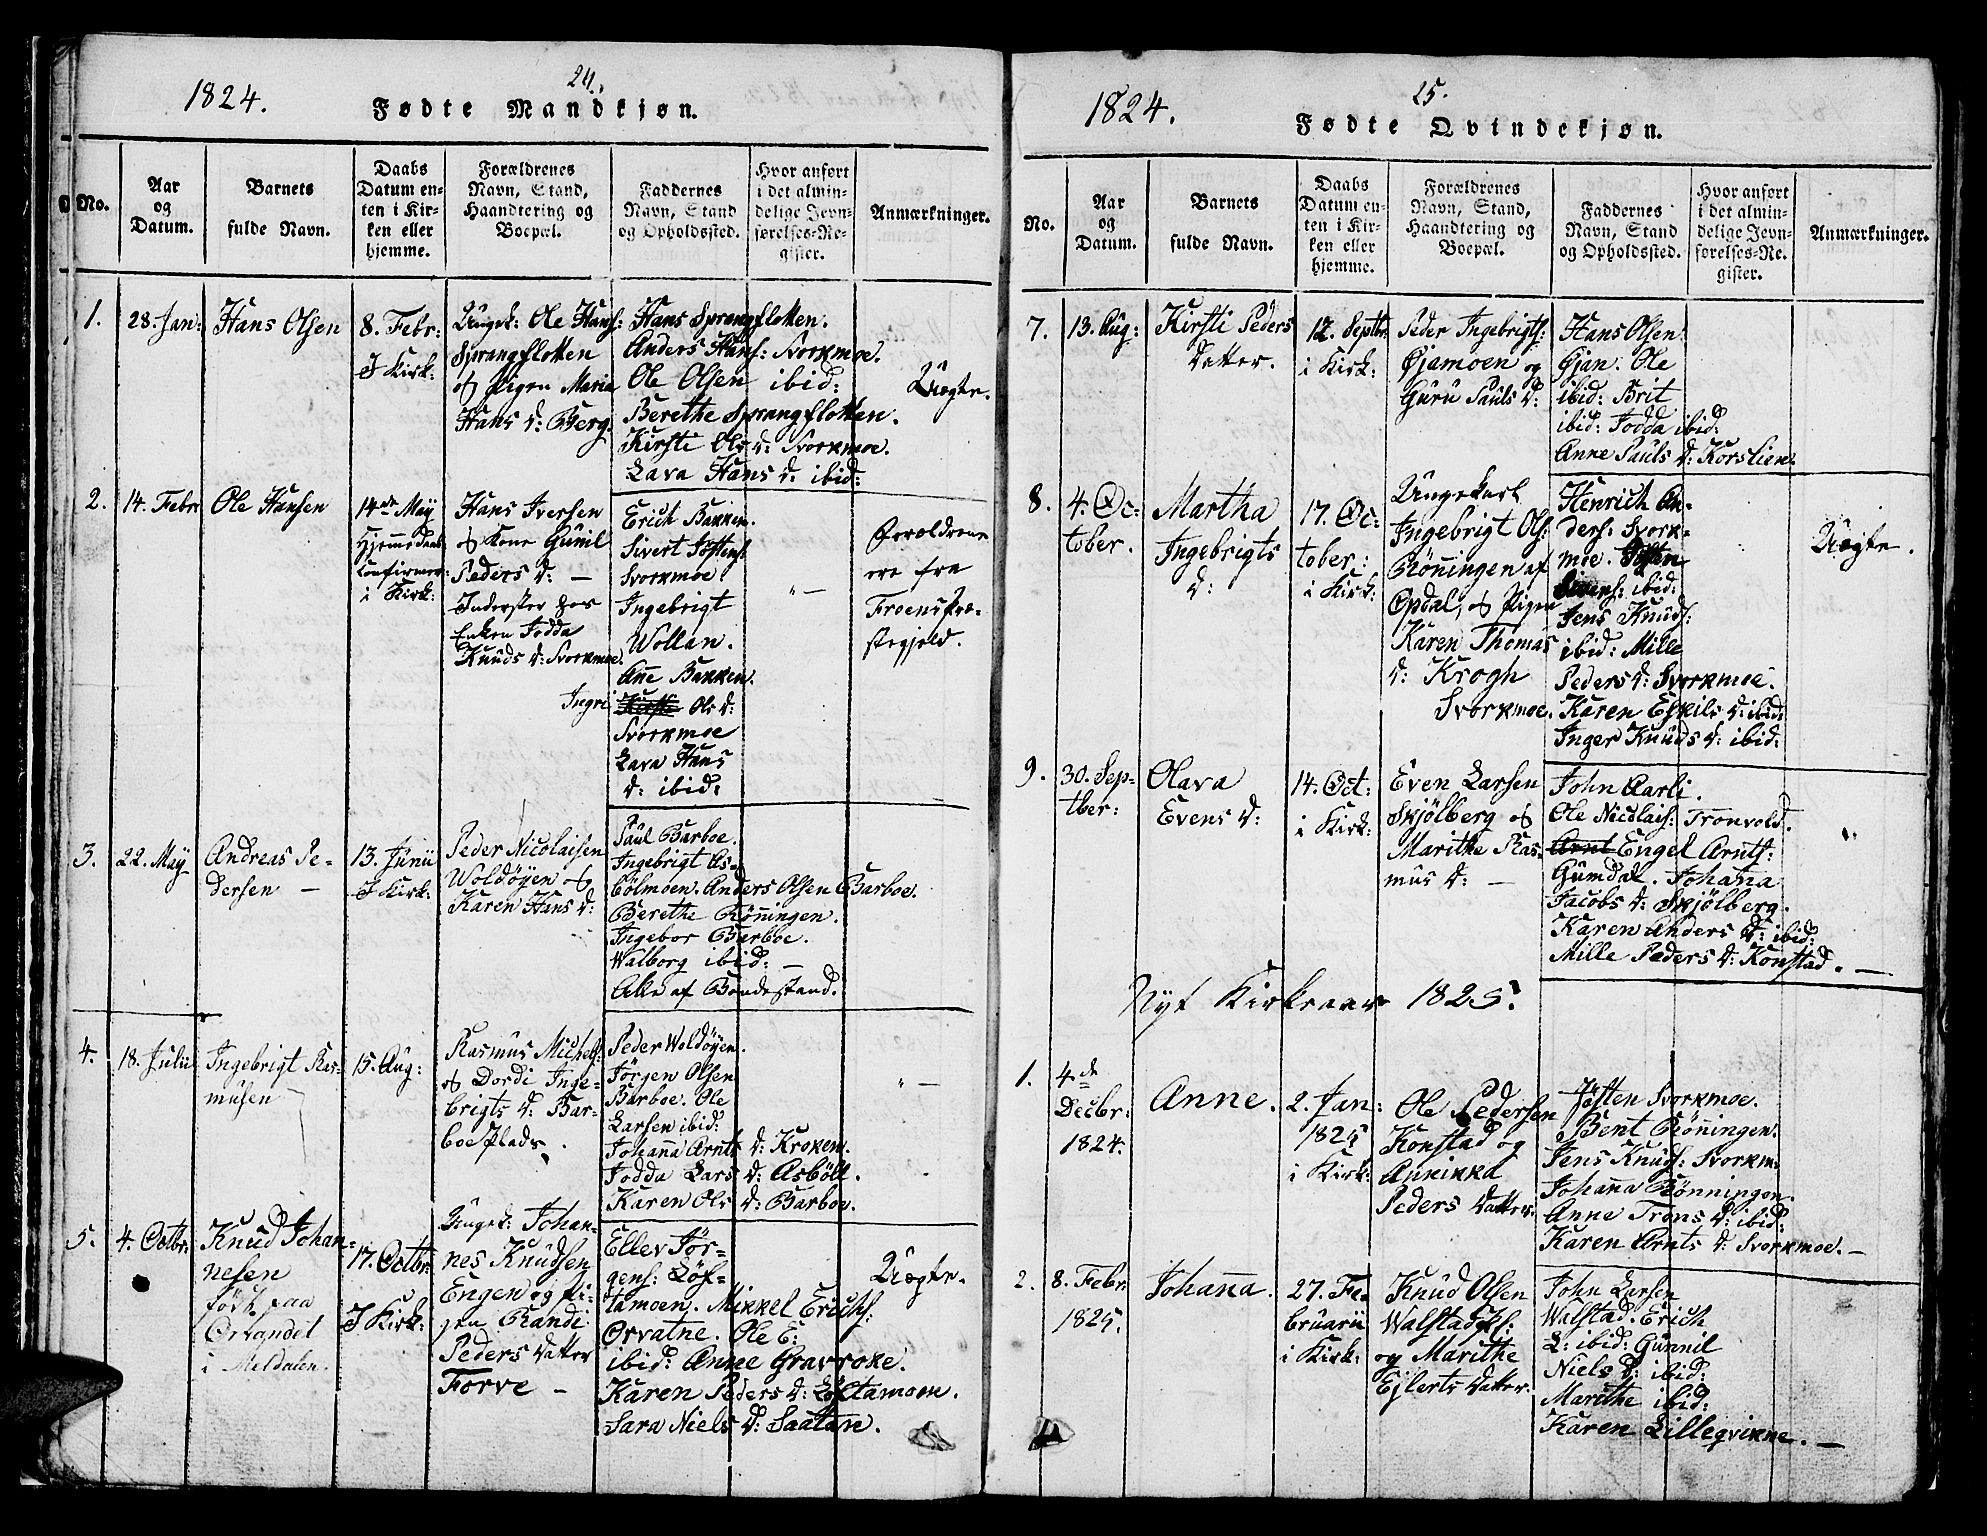 24.
1824.
Fødte Mandkjøn.
No.
Aar
og
Datum.
Barnets
fulde Navn.
Daabs
Datum en-
ten i Kir-
ken eller
hjemme.
Forældrenes
Navn, Stand,
Haandtering og
Boepæl.
Faddernes
Navn, Stand
og Opholdssted.
Hvor anført
i det almin-
delige Jevn-
førelses-Re-
gister.
Anmærkninger.
1.
28. Jan:
Hans Olsen
8. Febr:
I Kirk:
Ungk: Ole Hans:
Sprangflotten
og Pigen Maria
Hans D: Berg.
Hans Sprangflotten.
Anders Hans: Svorkmoe.
Ole Olsen ibid:
Berethe Sprangflotten.
Kirsti Ols D: Svorkmoe.
Lava Hans D: ibid:
Uægte.
2.
14. Febr
Ole Hansen
14de May
Hjemmedaab
Confirmer:
i Kirk:
Hans Iversen
og Kone Gunil
Peders D: —
Inderster hos
Enken Jodda
Knuds D: Svorkmoe.
Erich Bakken.
Sivert Jøstens:
Svorkmoe
Ingebrigt
Wollan.
Ane Bakken.
Ingri Kirsti Ols D:
Svorkmoe
Lava Hans
D: ibid:
" —
Forældrene
ere fra
Froens Præ-
stegjeld.
3.
22. May
Andreas Pe-
dersen —
13. Junii
I Kirk:
Peder Nicolaisen
Woldøyen og
Karen Hans D:
Paul Barboe.
Ingebrigt As-
bølmoen. Anders Olsen Barboe.
Berethe Rønningen.
Ingebor Barboe.
Walborg ibid: —
Alle af Bondestand.
4.
18. Julii
Ingebrigt Ras-
musen —
15. Aug:
Rasmus Michels:
og Dordi Inge-
brigts D: Bar-
boe Plads.
Peder Woldøyen.
Jørgen Olsen
Barboe. Ole
Larsen ibid:
Johanna Arnts D: Kroken.
Jodda Lars D: Asbøll.
Karen Ols D: Barboe.
" —
5.
4. Octbr:
Knud Johan-
nesen
født paa
Orkandet
i Meldalen.
17. Octbr:
I Kirk:
Ungk: Johan-
nes Knudsen
Engen og Pi-
gen Randi
Peders Datter
Forve —
Ellev Jør-
gens: Løf-
tamoen. Mikkel Erichs:
Orvatne. Ole E:
ibid: Anne Gravroke.
Karen Peders D: Løftamoen.
Sara Niels D: Saatan.
Uægte.
25.
1824.
Fødte Qvindekjøn.
No.
Aar
og
Datum.
Barnets
fulde Navn.
Daabs
Datum en-
ten i Kir-
ken eller
hjemme.
Forældrenes
Navn, Stand,
Haandtering og
Boepæl.
Faddernes
Navn, Stand
og Opholdssted.
Hvor anført
i det almin-
delige Jevn-
førelses-Re-
gister.
Anmærkninger.
7.
13. Aug:
Kirsti Peders
Datter.
12. Septbr.
i Kirk:
Peder Ingebrigts:
Øjamoen og
Guru Pauls D:
Hans Olsen
Øjan. Ole
ibid: Brit
ibid: Jodda ibid:
Anne Pauls D: Korslien.
8.
4. Oc-
tober.
Martha
Ingebrigts
D:
17. Oc-
tober:
i Kirk:
Ungekarl
Ingebrigt Ols:
Rønningen af
Opdal, og Pigen
Karen Thomas
D: Krogh
Svorkmoe.
Henrich An-
ders: Svork-
moe. Josten
Sivers: ibid:
Jens Knuds:
ibid: Mille
Peders D: Svorkmoe.
Karen Eskils D: ibid:
Inger Knuds D: ibid:
Uægte.
9.
30. Sep-
tber:
Olava
Evens D:
14. Oct:
i Kirk:
Even Larsen
Skjølberg og
Marithe Ras-
mus D: —
John Aarli.
Ole Nicolais: Tronvold.
Arnt Engel Arnts:
Gumdal. Johanna
Jacobs D: Skjølberg.
Karen Anders D: ibid:
Mille Peders D: Konstad. —
"
Nyt Kirkeaar 1825.
1.
4de
Decbr:
1824.
Anne.
2. Jan:
1825
i Kirk:
Ole Pedersen
Konstad og
Annikka
Peders Datter.
Jøsten Svorkmoe.
Bent Rønningen.
Jens Knuds: Svorkm:
Johanna Rønningen.
Anne Trons D: ibid:
Karen Arnts D: Svorkmoe. —
2.
8. Febr:
1825.
Johanna.
27. Fe-
bruarii
i Kirk:
Knud Olsen
Walstad Pl:
og Marithe
Ejlerts Datter:
John Larsen
Walstad. Erich
L: ibid: Gunnil
Niels D: ibid:
Marithe ibid:
Karen Lillegvikne. —